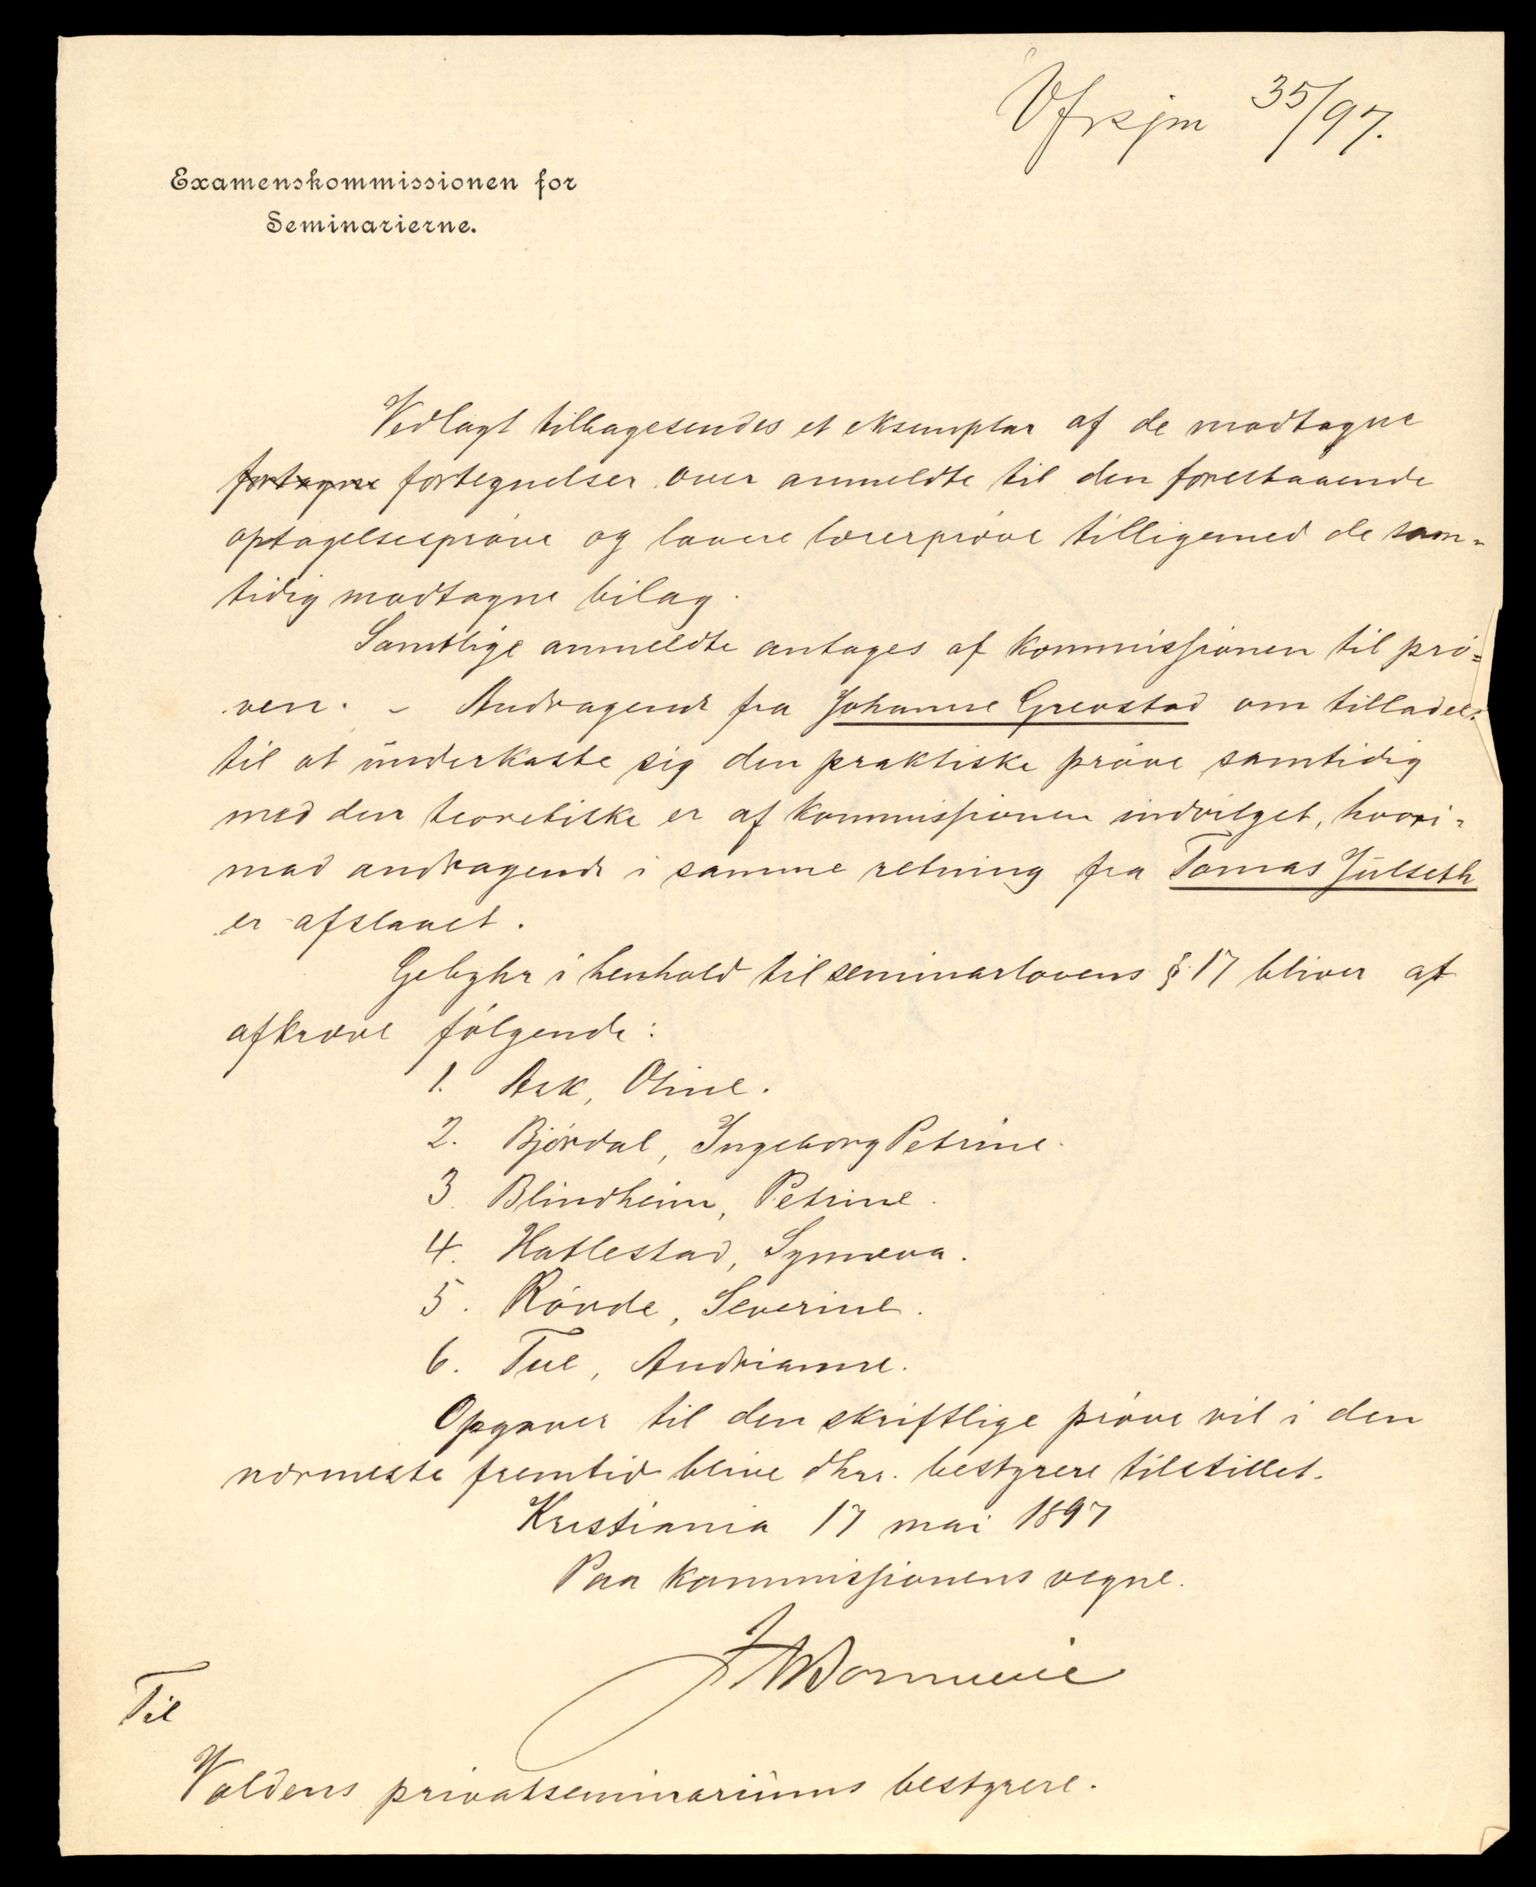 35/97.
Examenskommissionen for
Seminarierne.
Vedlagt tilbagesendes et eksemplar af de modtagne
fortagne fortegnelser over anmeldte til den forestaaende
optagelsesprøve og lavere lærerprøve tilligemed de sam-
tidig modtagne bilag.
Samtlige anmeldte antages af kommissionen til prø-
ven. - Andragende fra Johanne Grevstad om tilladel-
til at underkaste sig den praktiske prøve samtidig
med den teoretiske er af kommissionen indvilget, hvori-
mod andragende i samme retning fra Tomas Julseth
er afslaaet.
Gebyhr i henhold til seminarlovens § 17 bliver at
afkræve følgende:
1. Ask, Oline.
2. Bjørdal, Ingeborg Petrine.
3. Blindheim, Petrine.
4. Hatlestad, Synneva.
5. Røvde, Severine.
6. Tue, Andrianne.
Opgaver til den skriftlige prøve vil i den
nærmeste fremtid blive dhrr. bestyrere tilstillet.
Kristiania 17 mai 1897
Paa kommissionens vegne.
Til
Voldens privatseminariums bestyrere.